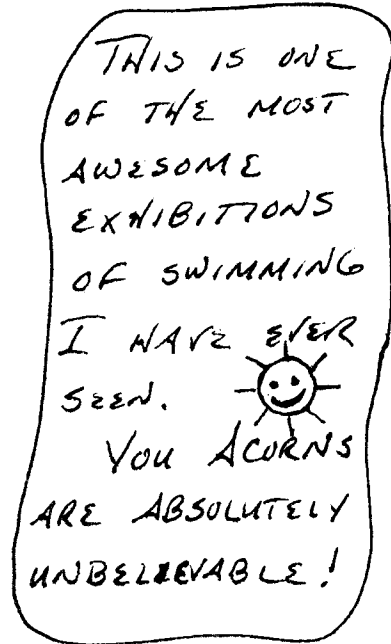 THIS IS ONE
OF THE MOST
AWESOME
EXHIBITIONS
OF SWIMMING
I HAVE EVER
SEEN.
YOU ACORNS
ARE ABSOLUTELY
UNBELIEVABLE!